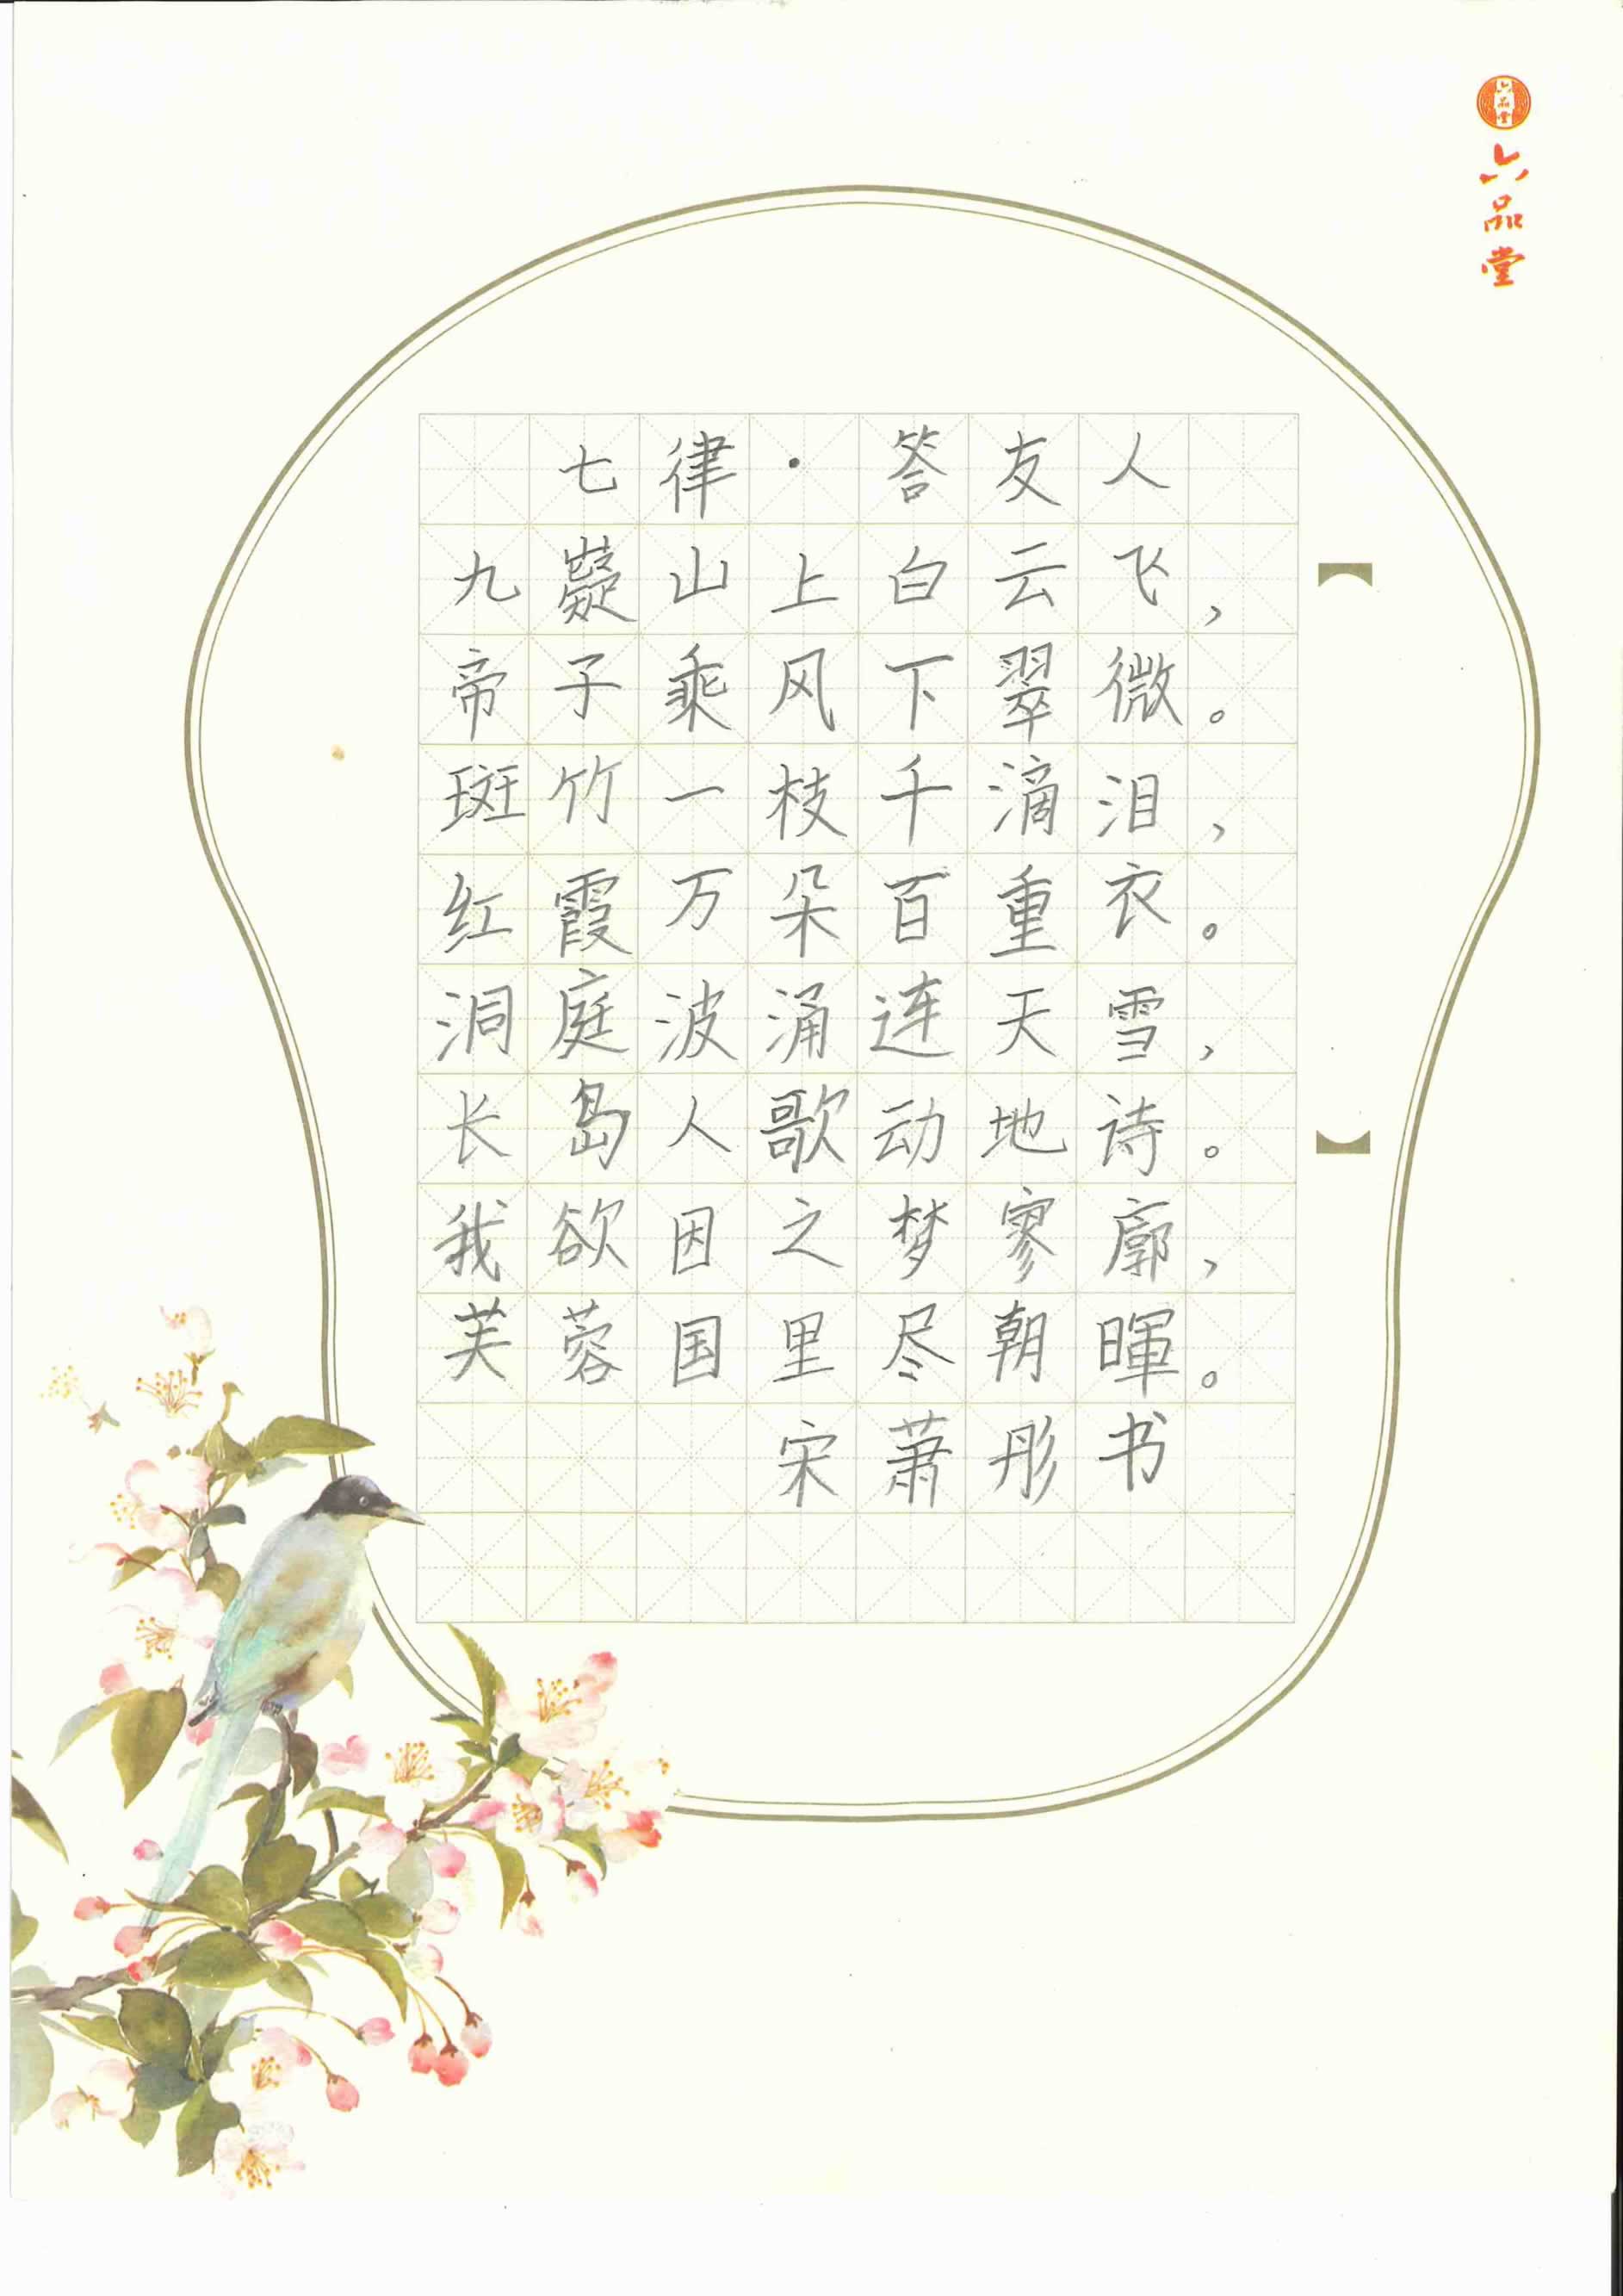 六品堂
六品堂
七律·答友人
九嶷山上白云飞，
帝子乘风下翠微。
斑竹一枝千滴泪，
红霞万朵百重衣。
洞庭波涌连天雪，
长岛人歌动地诗。
我欲因之梦寥廓，
芙蓉国里尽朝暉。
宋萧彤书